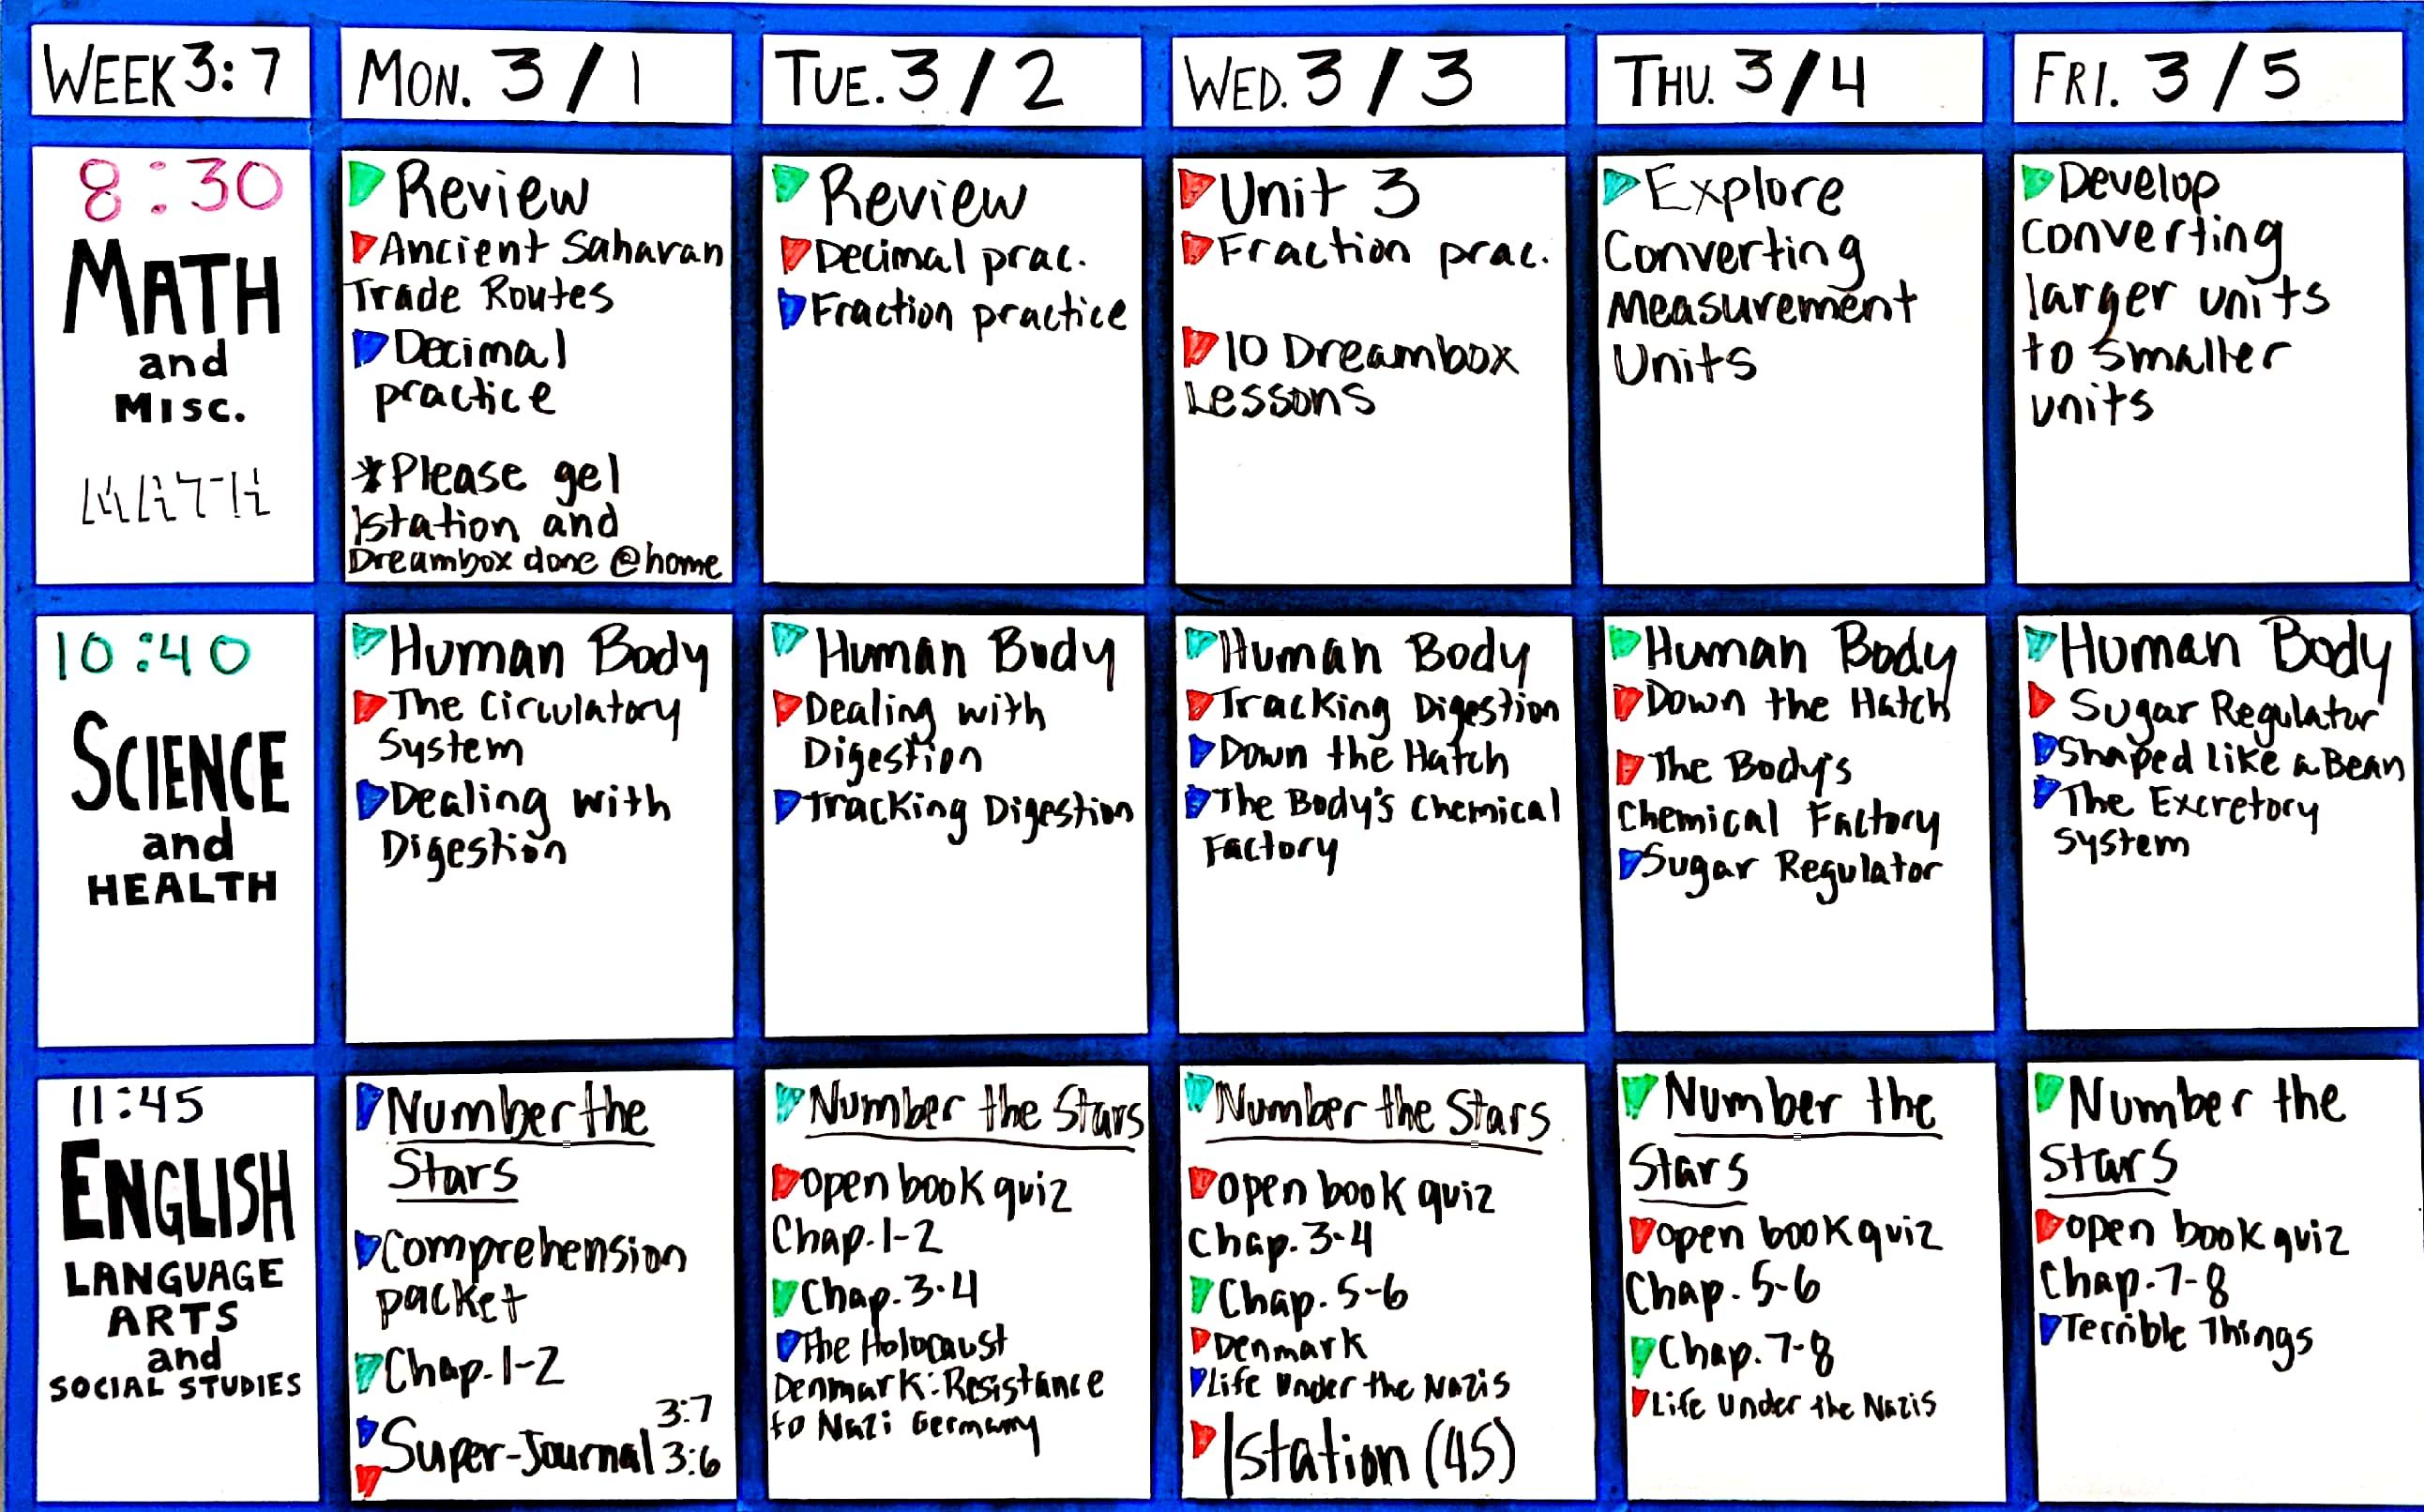 WEEK 3:7
MON. 3/1
TUE. 3/2
WED. 3/3
THU. 3/4
FRI. 3/5
8:30
MATH
and
MISC.
MATH
Review
Ancient Saharan
Trade Routes
Decimal
practice
*Please get
Istation and
Dreambox done @home
Review
Decimal prac.
Fraction practice
Unit 3
Fraction prac.
10 Dreambox
Lessons
Explore
Converting
Measurement
Units
Develop
converting
larger units
to smaller
units
10:40
SCIENCE
and
HEALTH
Human Body
The Circulatory
System
Dealing with
Digestion
Human Body
Dealing with
Digestion
Tracking Digestion
Human Body
Tracking Digestion
Down the Hatch
The Body's Chemical
Factory
Human Body
Down the Hatch
The Body's
Chemical Factory
Sugar Regulator
Human Body
Sugar Regulator
Shaped Like a Bean
The Excretory
System
11:45
ENGLISH
LANGUAGE
ARTS
and
SOCIAL STUDIES
Number the
Stars
Comprehension
packet
Chap. 1-2
3:7
Super-Journal 3:6
Number the Stars
open book quiz
Chap. 1-2
Chap. 3-4
The Holocaust
Denmark: Resistance
to Nazi Germany
Number the Stars
open book quiz
Chap. 3-4
Chap. 5-6
Denmark
Life Under the Nazis
Istation (45)
Number the
Stars
open book quiz
Chap. 5-6
Chap. 7-8
Life Under the Nazis
Number the
Stars
open book quiz
Chap. 7-8
Terrible Things